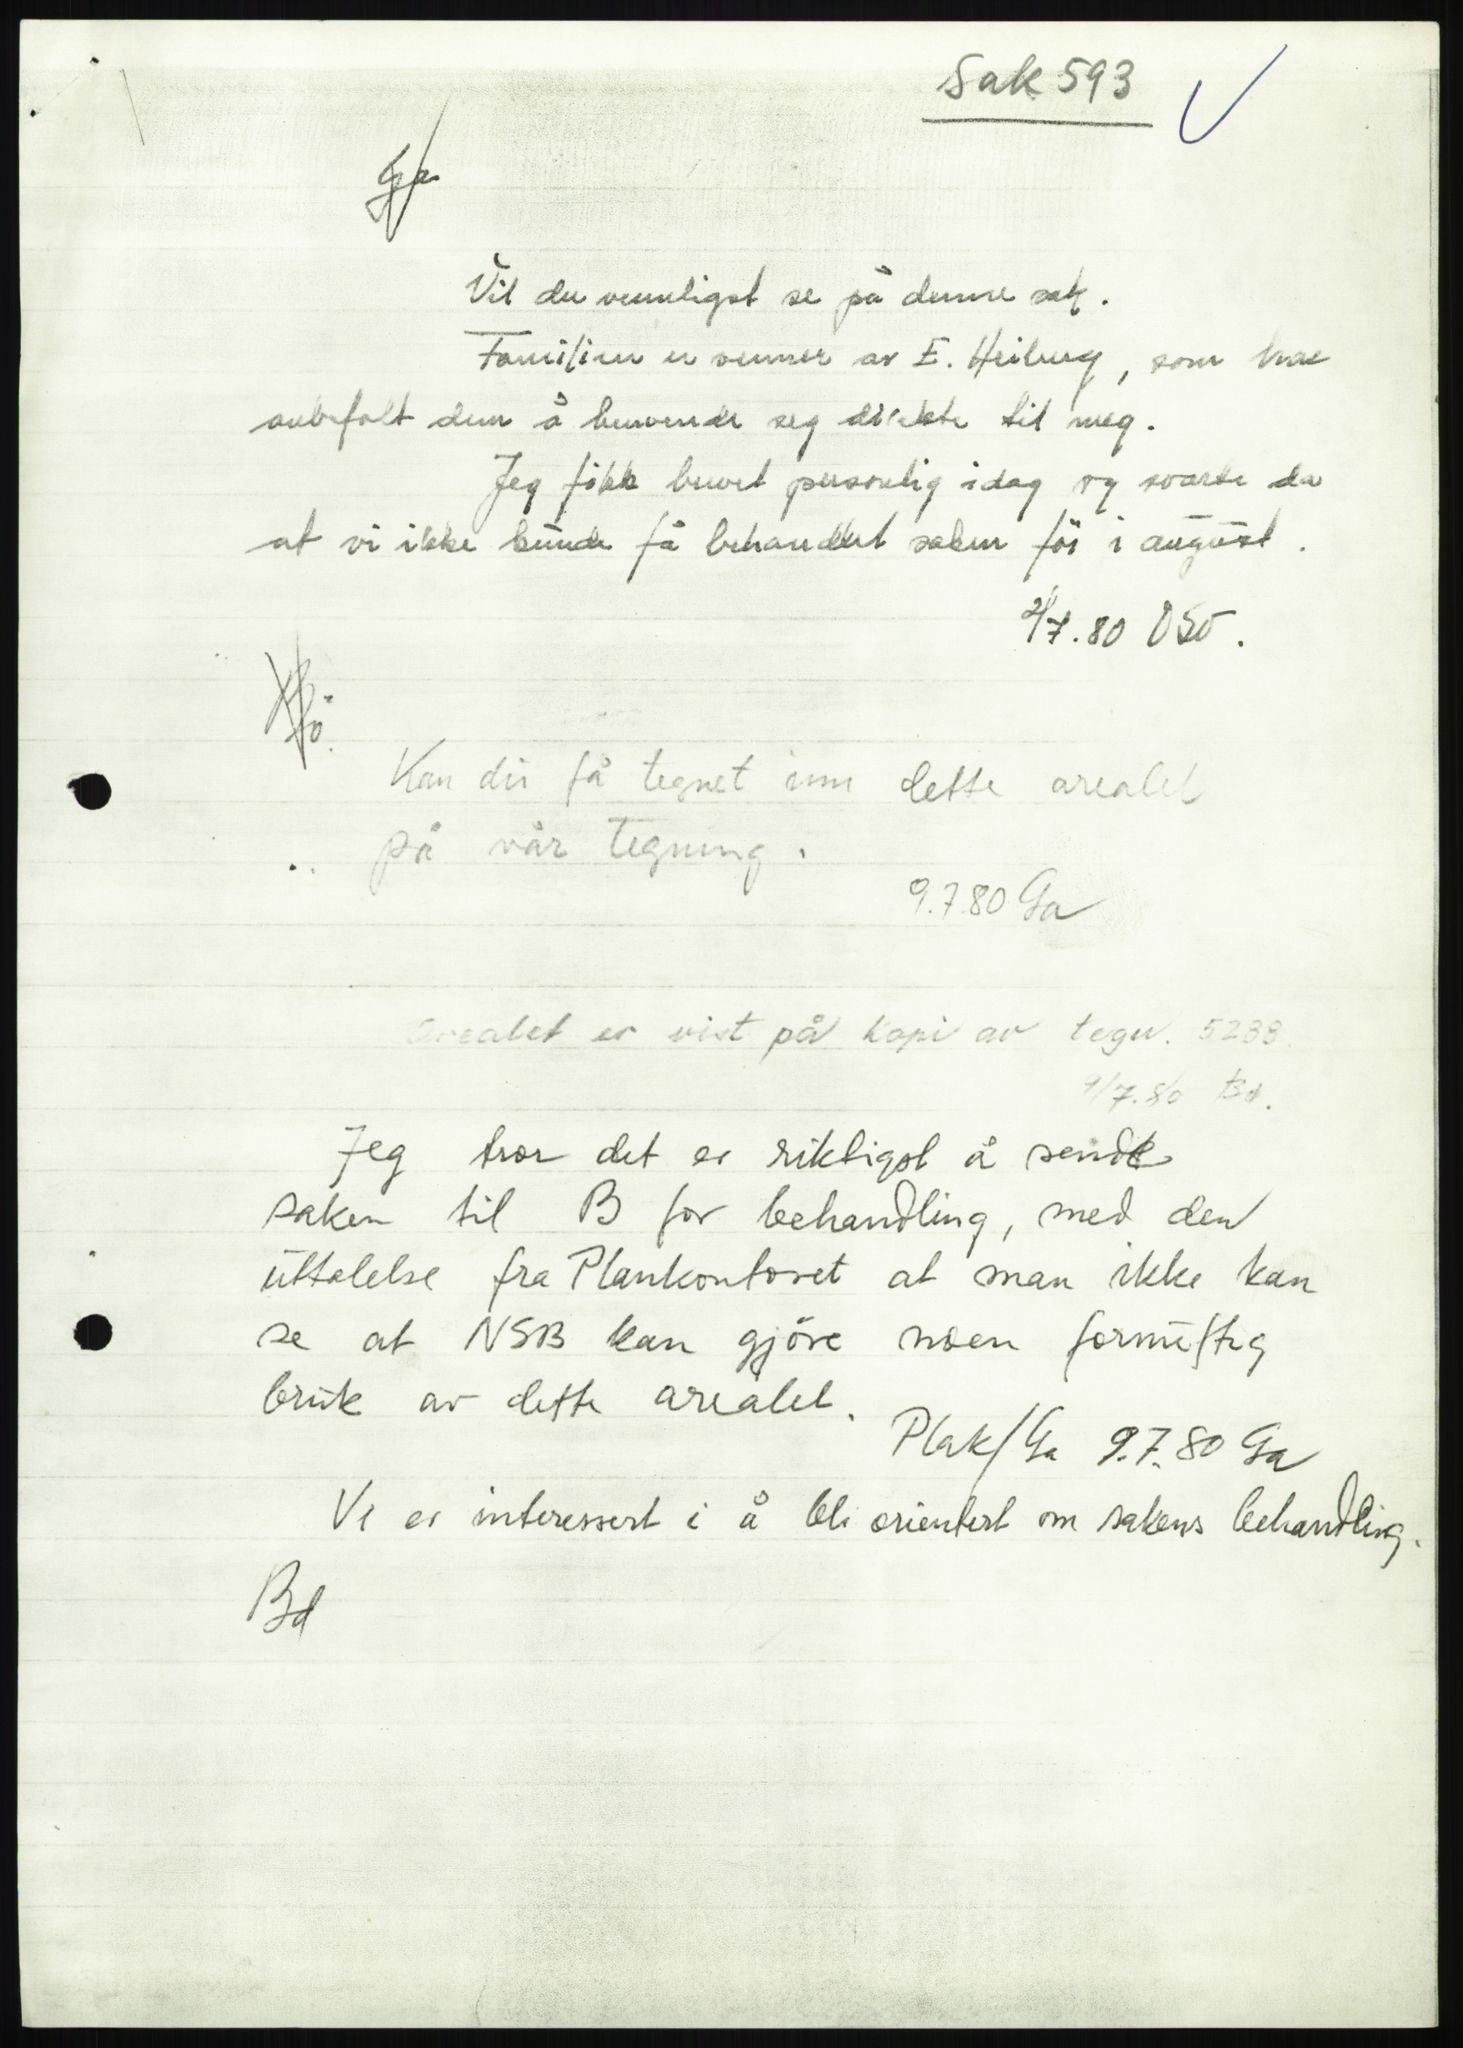 Sak 593
Ga
Vil du vennligst se på denne sak.
Familien er venner av E. Heiberg, som har
anbefalt dem å henvende seg direkte til meg.
Jeg fikk brevet personlig idag og svarte da
at vi ikke kunde få behandlet saken før i august.
2/7.80
Kan du få tegnet inn dette arealet
på vår tegning.
9.7.80 Ga
Arealet er vist på kopi av tegn. 5233.
9/7.80 Bd.
Jeg tror det er riktigst å sende
saken til B for behandling, med den
uttalelse fra Plankontoret at man ikke kan
se at NSB kan gjöre noen fornuftig
bruk av dette arealet.
Plak/Ga 9.7.80 Ga
Vi er interessert i å bli orientert om sakens behandling.
Bd